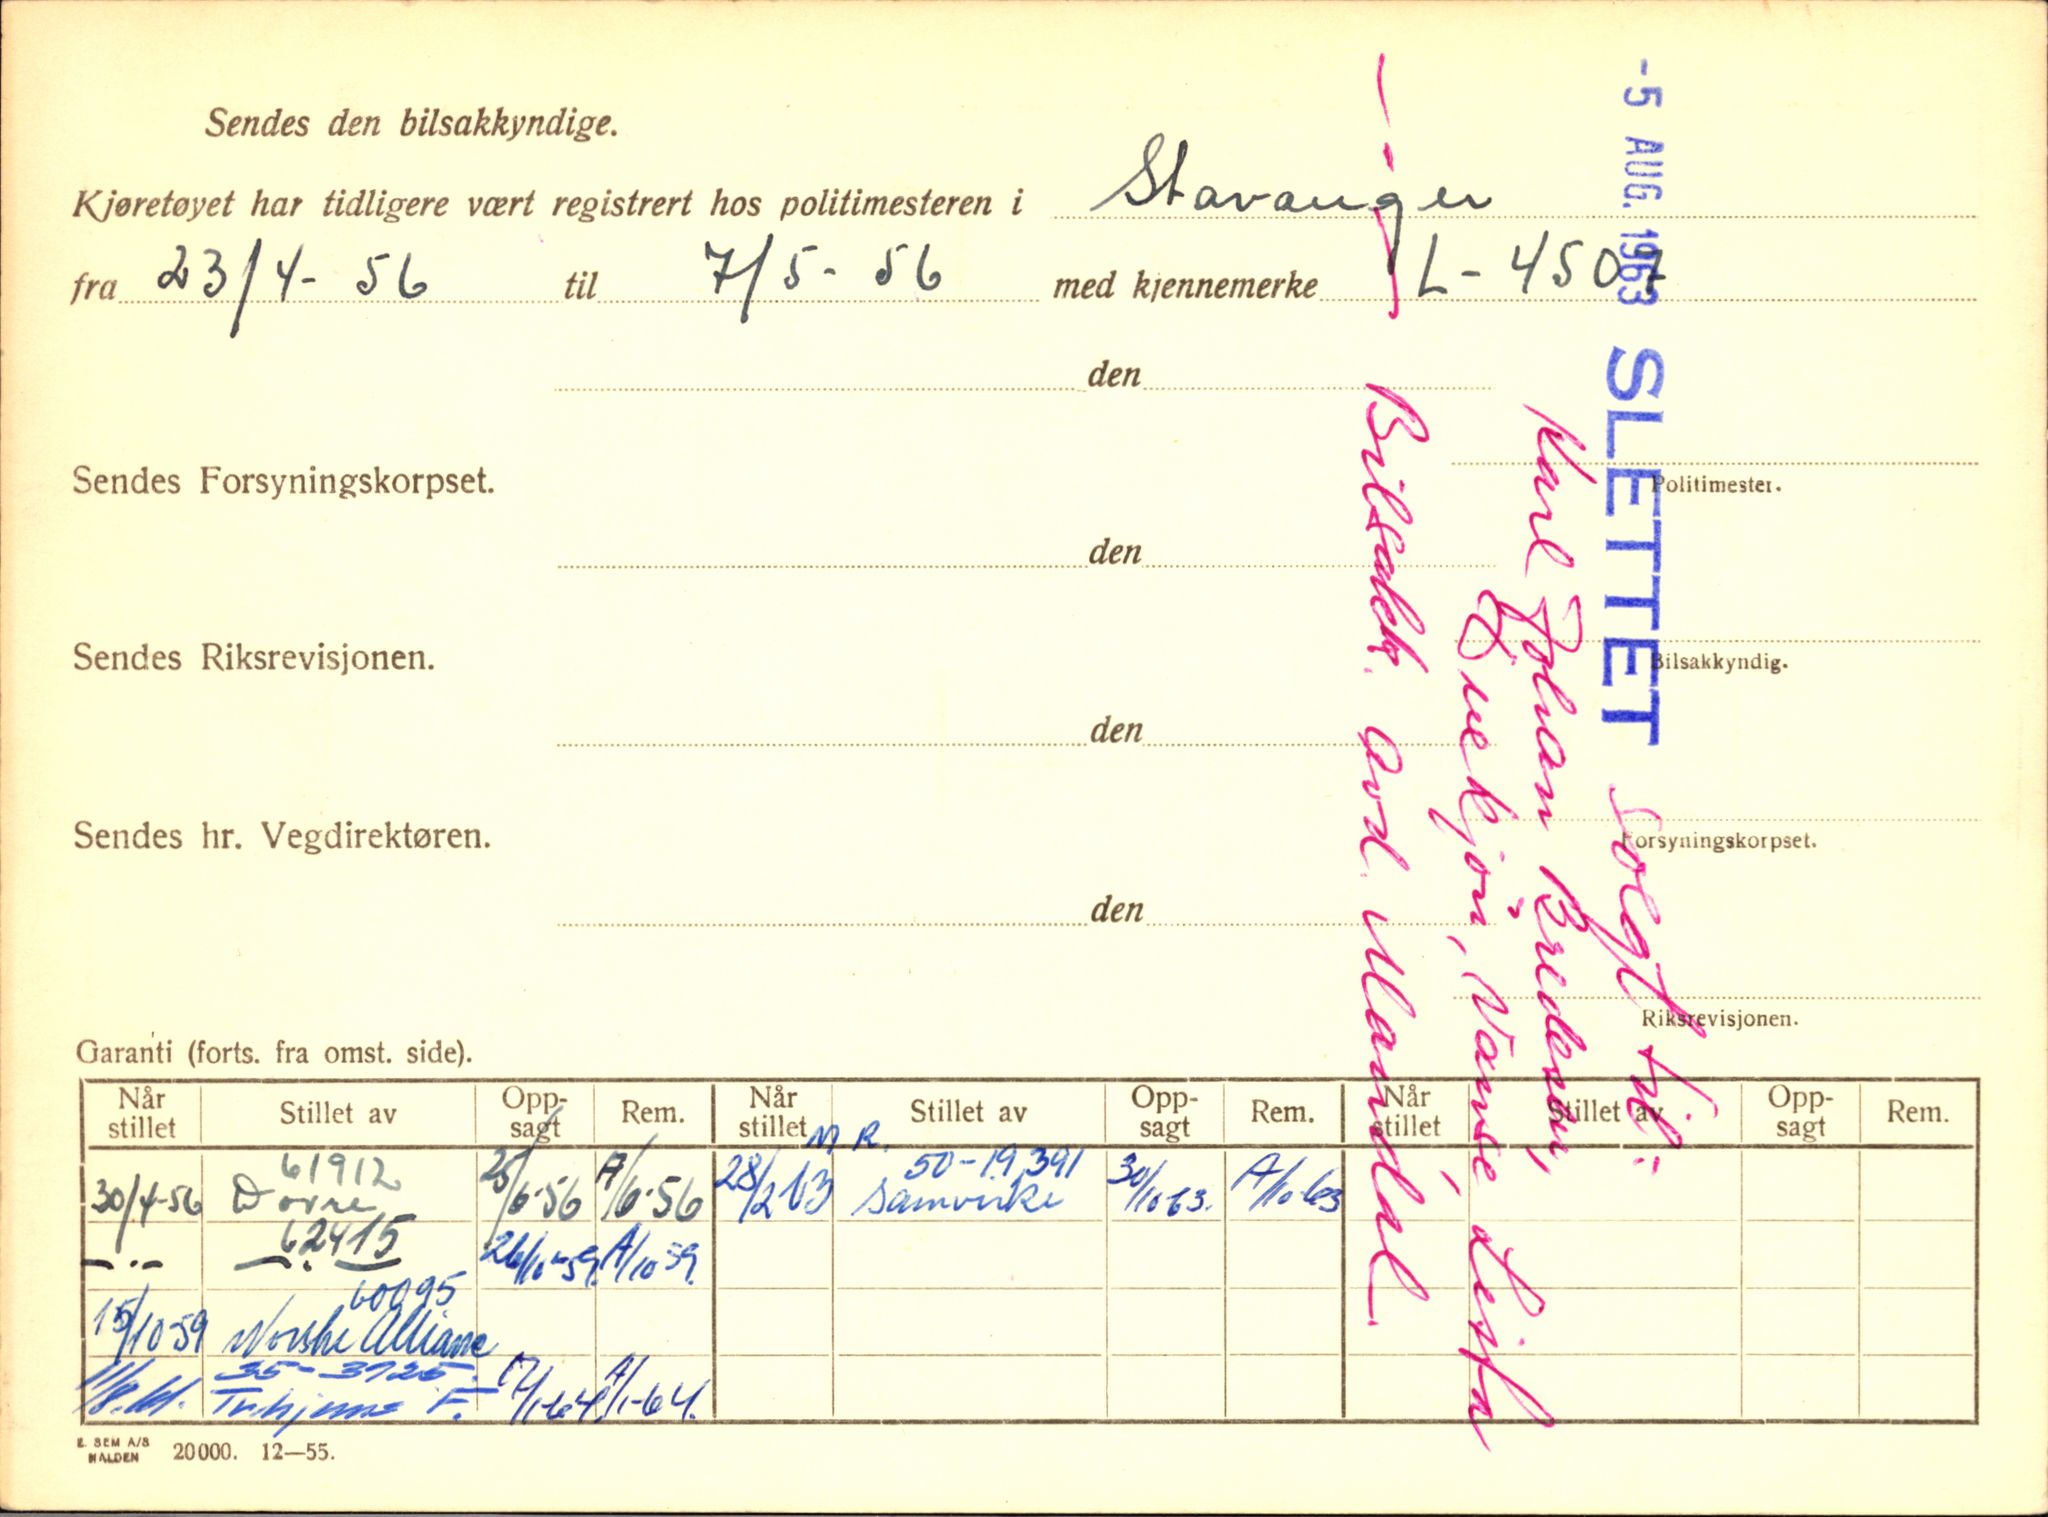 Sendes den bilsakkyndige.
Kjøretøyet har tidligere vært registrert hos politimesteren i Stavanger
fra 23/4- 56 til 7/5- 56 med kjennemerke L- 4507
den
Politimester.
Sendes Forsyningskorpset.
den
Bilsakkyndig.
Sendes Riksrevisjonen.
den
Forsyningskorpset.
Sendes hr. Vegdirektøren.
den
Riksrevisjonen.
-5 AUG. 1963 SLETTET Solgt til:
Karl Johan Bredesen,
Vanse, Lista
Bilsakk. avd. Mandal.
Garanti (forts. fra omst. side).
Når stillet Stillet av Opp-sagt Rem. Når stillet Stillet av Opp-sagt Rem. Når stillet Stillet av Opp-sagt Rem.
61912 M R. 50-19391
30/4-56 Dovre 25/6-56 A/6-56 28/2 63 Samvirke 30/10-63. A/10-63
62415
—.— —.— 26/10-59. A/10 59.
60095
15/10-59 Norske Alliance
35-3725
11/8.61. F. 17/1-64 A/1-64.
E. SEM A/S
HALDEN 20000. 12—55.